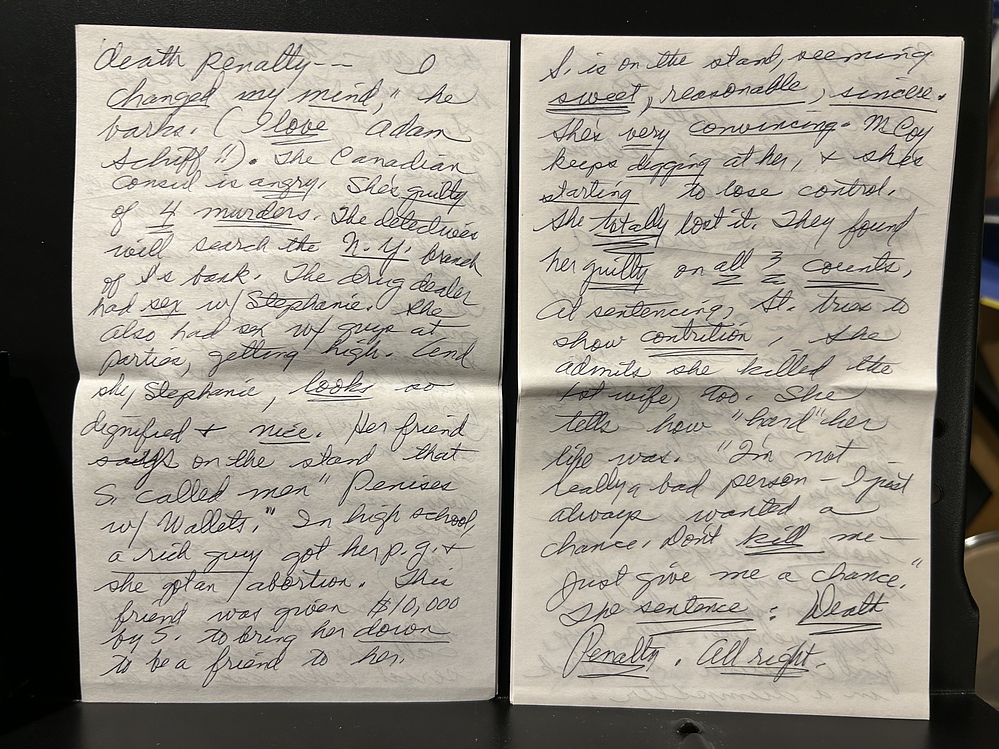 death penalty -- I
changed my mind," he
barks. (I love Adam
Schiff!!). The Canadian
consul is angry. She's guilty
of 4 murders. The detectives
will search the N.Y. branch
of I's bank. The drug dealer
had sex w/ Stephanie. She
also had sex w/ guys at
parties, getting high. And
she, Stephanie, looks so
dignified & nice. Her friend
says on the stand that
S. called men "Penises
w/ Wallets." In high school,
a rich guy got her p.g. &
she got an abortion. This
friend was given $10,000
by S. to bring her down
to be a friend to her.
S. is on the stand, seeming
sweet, reasonable, sincere.
She's very convincing. McCoy
keeps digging at her, & she's
starting to lose control.
She totally lost it. They found
her guilty on all 3 counts.
At sentencing, St. tries to
show contrition, she
admits she killed the
1st wife, too. She
tells how "hard" her
life was. "I'm not
really a bad person - I just
always wanted a
chance. Don't kill me -
just give me a chance."
The sentence: Death
Penalty. All right.